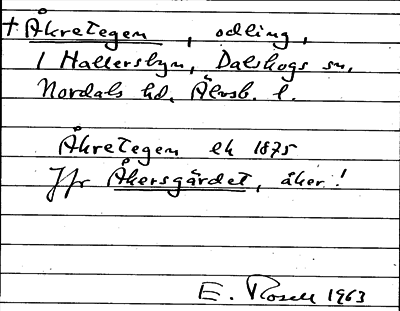 † Åkretegen, odling,
i Hallersbyn, Dalskogs sn,
Nordals hd, Älvsb. l.
Åkretegen ek 1875
Jfr Åkersgärdet, åker!
E. Rosell 1963